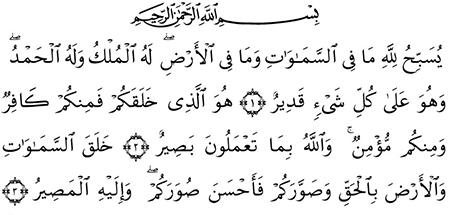 بِسْمِ ٱللَّهِ ٱلرَّحْمَٰنِ ٱلرَّحِيمِ
يُسَبِّحُ لِلَّهِ مَا فِي ٱلسَّمَٰوَٰتِ وَمَا فِي ٱلْأَرْضِۖ لَهُ ٱلْمُلْكُ وَلَهُ ٱلْحَمْدُۖ
وَهُوَ عَلَىٰ كُلِّ شَيْءٍ قَدِيرٌ ﴿١﴾ هُوَ ٱلَّذِي خَلَقَكُمْ فَمِنكُمْ كَافِرٌ
وَمِنكُم مُّؤْمِنٌۚ وَٱللَّهُ بِمَا تَعْمَلُونَ بَصِيرٌ ﴿٢﴾ خَلَقَ ٱلسَّمَٰوَٰتِ
وَٱلْأَرْضَ بِٱلْحَقِّ وَصَوَّرَكُمْ فَأَحْسَنَ صُوَرَكُمْۖ وَإِلَيْهِ ٱلْمَصِيرُ ﴿٣﴾